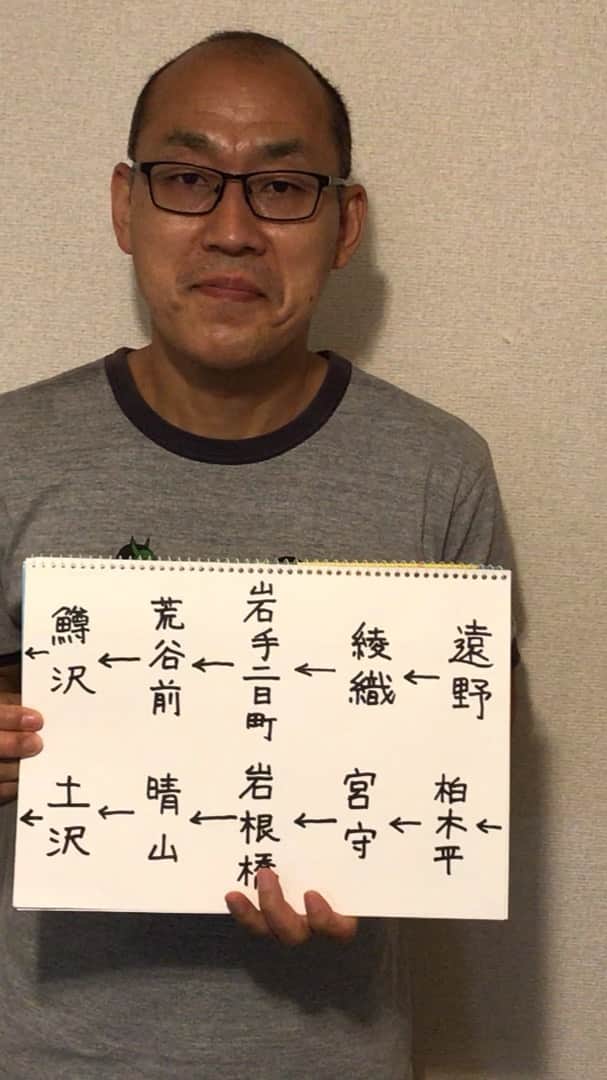 遠野
←
綾織
←
岩手二日町
←
荒谷前
←
鱒沢
←
←
柏木平
←
宮守
←
岩根橋
←
晴山
←
土沢
←